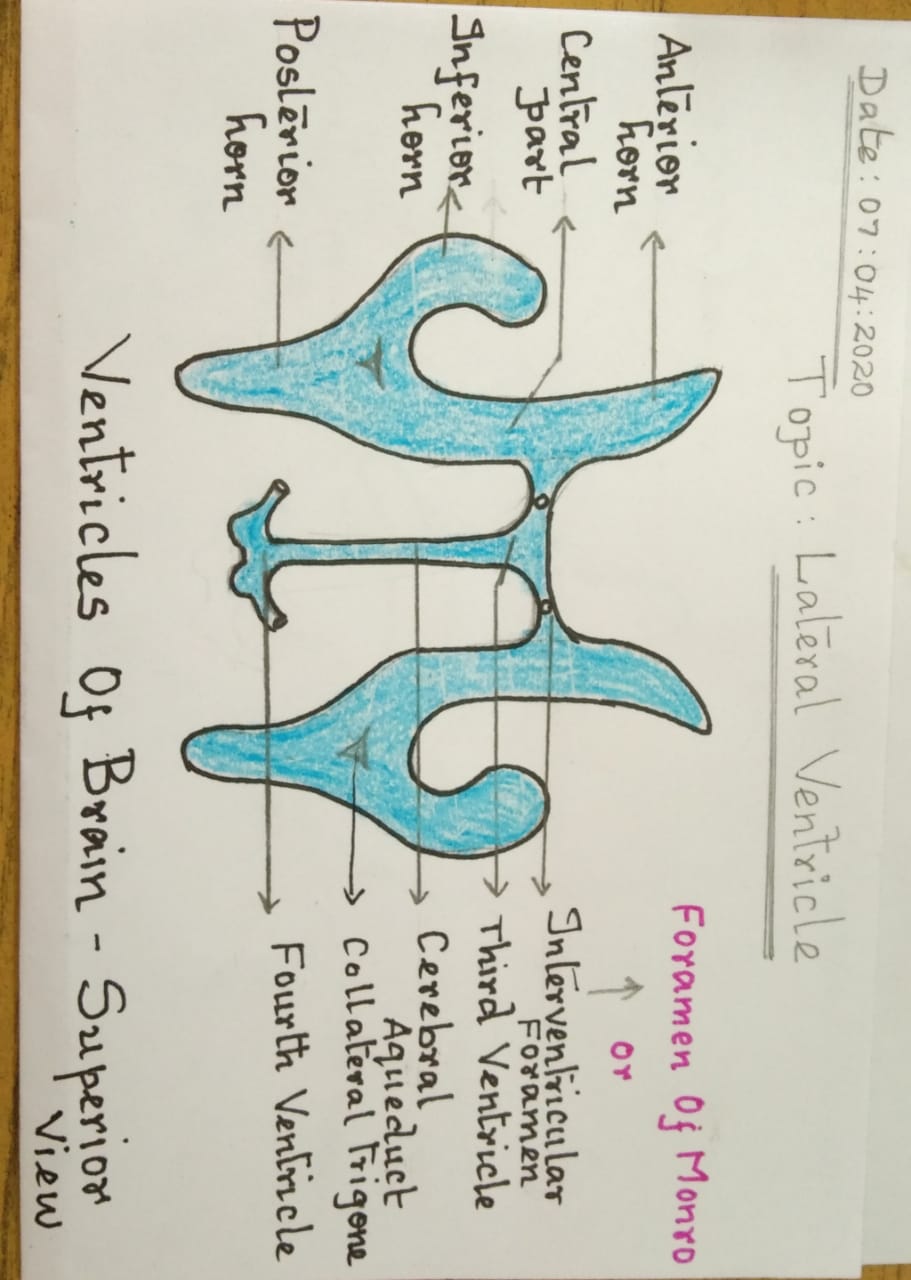 Date: 07:04:2020
Topic: Lateral Ventricle
Foramen Of Monro
or
Anterior
horn
Central
part
Inferior
horn
Posterior
horn
Interventricular
Foramen
Third Ventricle
Cerebral
Aqueduct
Collateral Trigone
Fourth Ventricle
Ventricles Of Brain - Superior
View